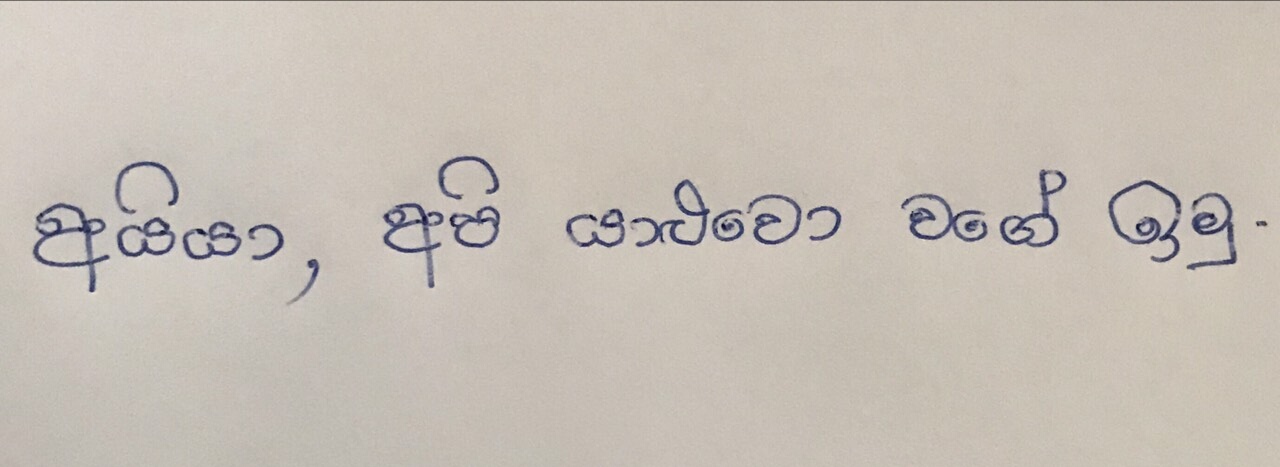 අයියා, අපි යාළුවො වගේ ඉමු.